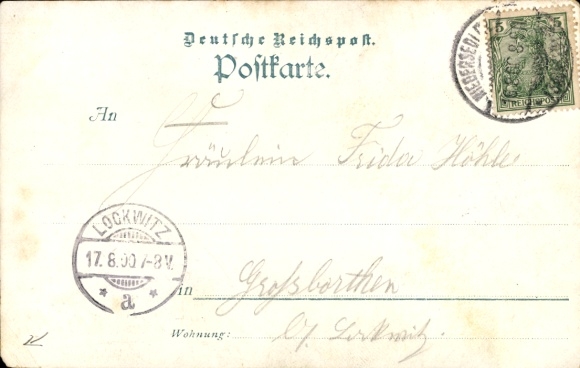 Deutsche Reichspost.
Postkarte.
5 5
REICHSPOST
NIEDERSEDLITZ
An
Fräulein Frida Höhle
LOCKWITZ
17. 8. 00. 7-8 V.
* a *
in Grossborthen
Wohnung: b/ Lockwitz